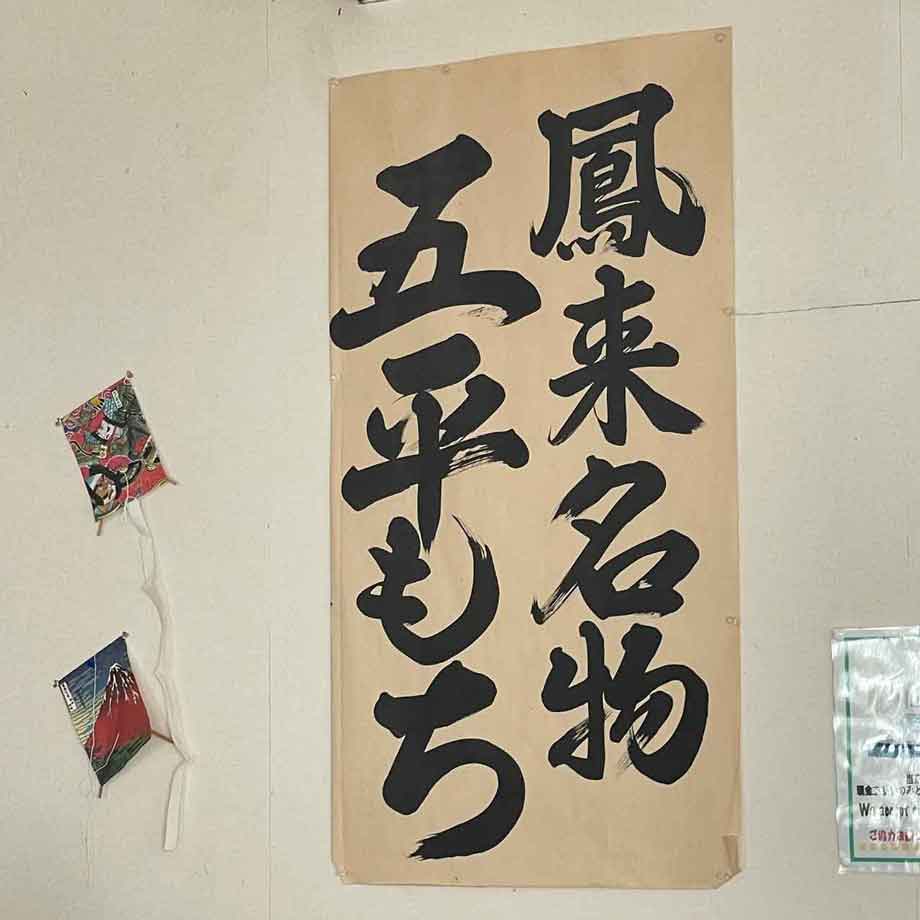 鳳来名物
五平もち